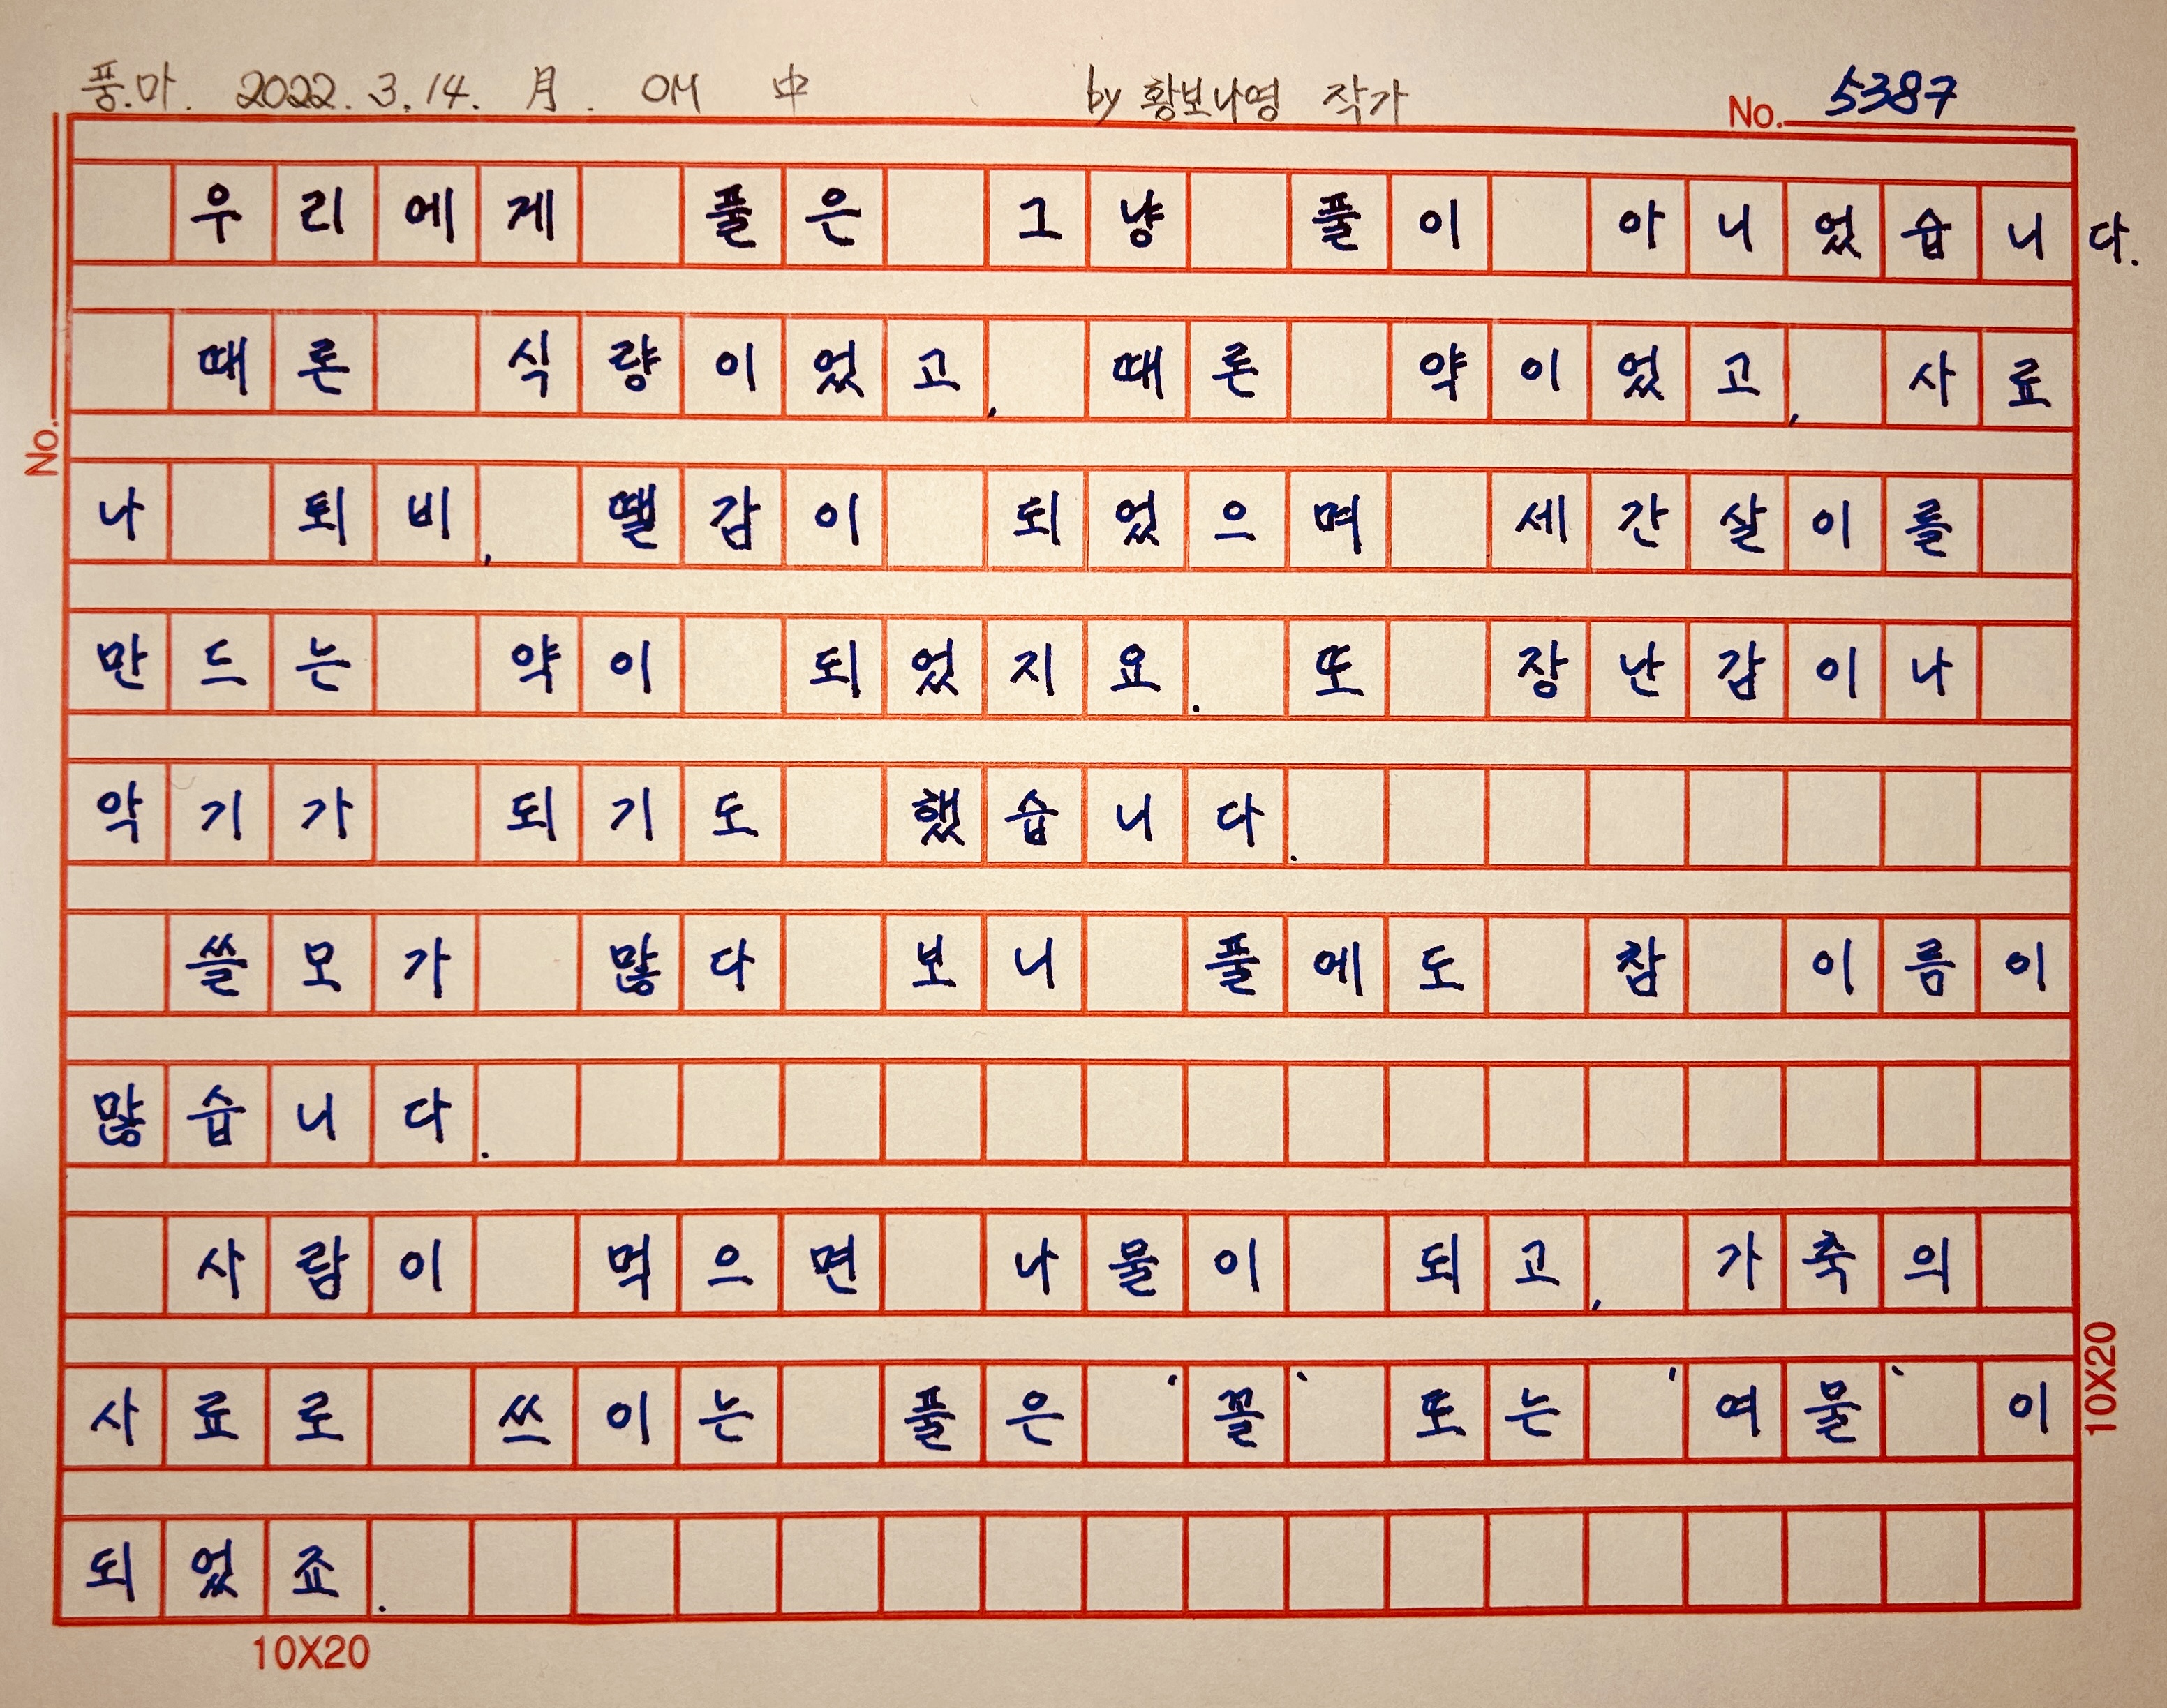 풍.마. 2022. 3. 14. 月. OM 中 by 황보나영 작가 No. 5387
우리에게 풀은 그냥 풀이 아니었습니다.
때론 식량이었고, 때론 약이었고, 사료
나 퇴비, 땔감이 되었으며 세간살이를
만드는 약이 되었지요. 또 장난감이나
악기가 되기도 했습니다.
쓸모가 많다 보니 풀에도 참 이름이
많습니다.
사람이 먹으면 나물이 되고, 가축의
사료로 쓰이는 풀은 '꼴' 또는 '여물' 이
되었죠.
No.
10X20
10X20